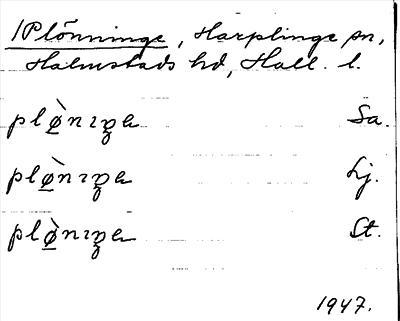 1Plönninge, Harplinge sn,
Halmstads hd, Hall. l.
plø̀nıŋa Sa.
plø̀nıŋa Lj.
plø̀nıŋa St.
1947.